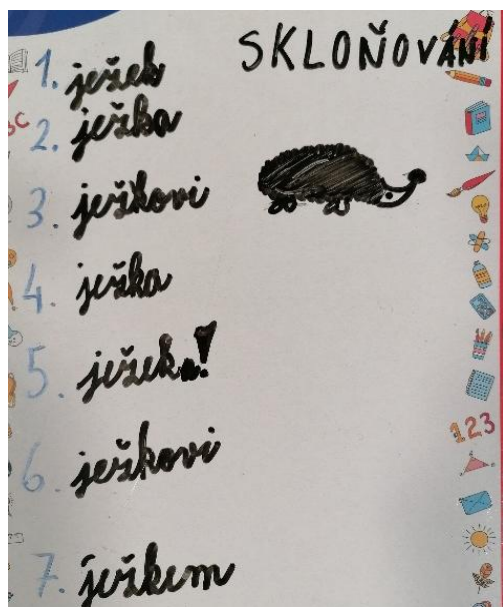 SKLOŇOVÁNÍ
1. ježek
2. ježka
3. ježkovi
4. ježka
5. ježek!
6. ježkovi
7. ježkem
123